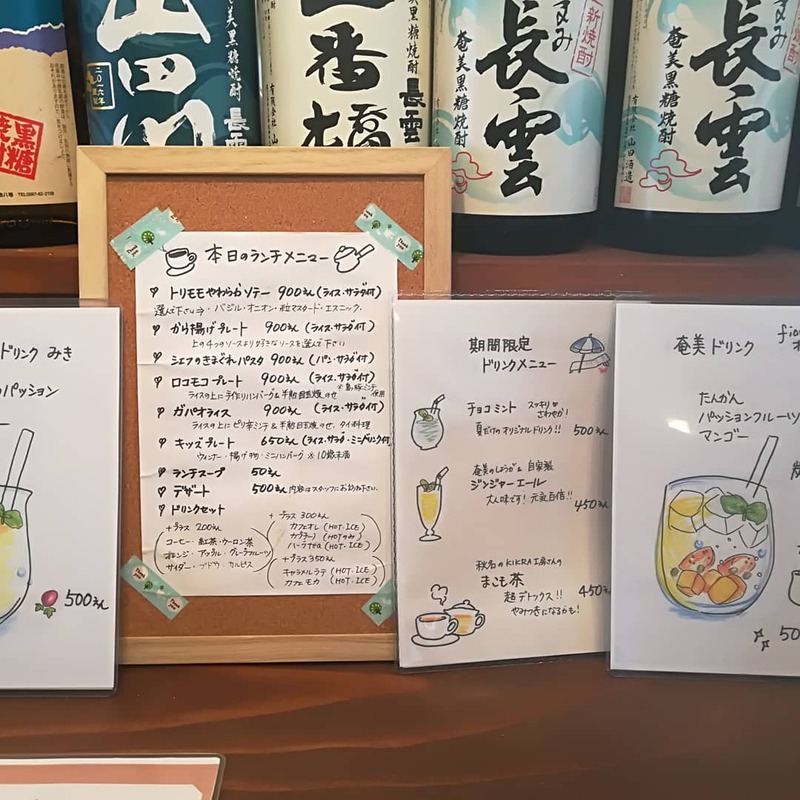 黒糖
TEL0997-62-2109
山田川
奄美黒糖焼酎
二〇一六年
長雲
一番橋
奄美黒糖焼酎
長雲
長雲
奄美黒糖焼酎
新焼酎
有限会社山田酒造
長雲
奄美黒糖焼酎
有限会社山田酒造
ドリンク みき
パッション
500えん
本日のランチメニュー
トリモモやわらかソテー 900えん (ライス・サラダ付)
選んで下さい⇒・バジル・オニオン・粒マスタード・エスニック
から揚げプレート 900えん (ライス・サラダ付)
上の4つのソースより好きなソースを選んで下さい
シェフのきまぐれパスタ 900えん (パン・サラダ付)
ロコモコプレート 900えん (ライス・サラダ付)
ライスの上に手作りハンバーグ&半熟目玉焼のせ
ガパオライス 900えん (ライス・サラダ付)
ライスの上にピリ辛ミンチ&半熟目玉焼のせ、タイ料理
キッズプレート 650えん (ライス・サラダ・ミニドリンク付)
ウィンナー・揚げポテト・ミニハンバーグ ※10歳未満
ランチスープ 50えん
デザート 500えん 内容はスタッフにお訪ね下さい。
ドリンクセット
+プラス 200えん
コーヒー・紅茶・ウーロン茶
オレンジ・アップル・グレープフルーツ
サイダー・ブドウ・カルピス
+プラス 300えん
カフェオレ (HOT・ICE)
カプチーノ (HOTのみ)
ハーブtea (HOT・ICE)
+プラス350えん
キャラメルラテ (HOT・ICE)
カフェモカ (HOT・ICE)
期間限定
ドリンクメニュー
チョコミント スッキリ♡さわやか!
夏だけのオリジナルドリンク!! 500えん
奄美のしょうが 自家製
ジンジャーエール
大人味です!元気百倍!! 450えん
秋名のKIKRA工房さんの
まこも茶 450えん
超デトックス!!
やみつきになるかも!
奄美ドリンク
たんかん
パッションフルーツ
マンゴー
50